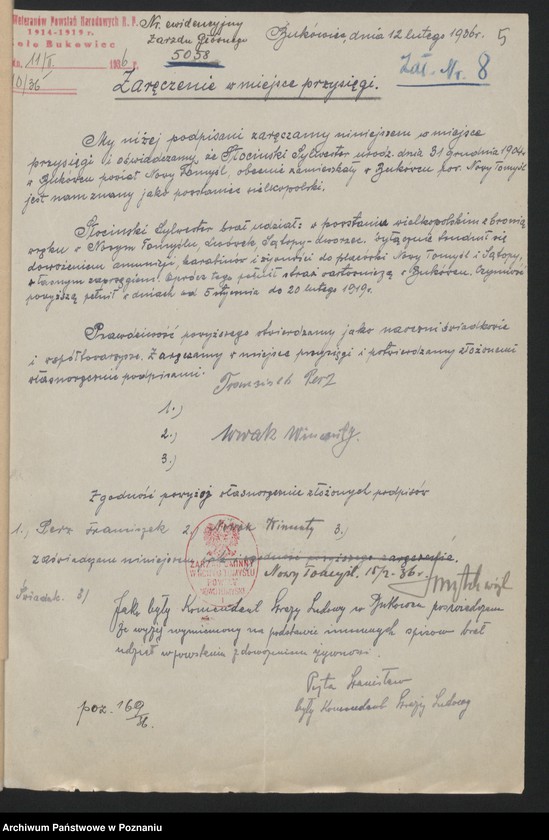 Weteranów Powstań Narodowych R. P.
1914-1919 r.
Koło Bukowiec
11/I 1936 r.
10/36
Nr. ewidencyjny
Zarządu Głównego
5058
Bukówiec, dnia 12 lutego 1936r.
5
Zał. Nr. 8
Zaręczenie w miejsce przysięgi.
My niżej podpisani zaręczamy niniejszem w miejsce
przysięgi i oświadczamy, że Stociński Sylwester urodz. dnia 31 grudnia 1904
w Bukówcu powiat Nowy Tomyśl, obecnie zamieszkały w Bukówcu pow. Nowy Tomyśl
jest nam znany jako powstaniec wielkopolski.
Stociński Sylwester brał udział: w powstaniu wielkopolskim z bronią
w ręku w Nowym Tomyślu, Lwówek, Sątopy-dworzec. wyłącznie trudnił się
dowożeniem amunicji, karabinów i żywności do placówki Nowy Tomyśl i Sątopy,
własnym zaprzęgiem. Oprócz tego pełnił straż wartowniczą w Bukówcu. Czynność
powyższą pełnił w dniach od 5 stycznia do 20 lutego 1919r.
Prawdziwość powyższego stwierdzamy jako naoczni świadkowie
i współtowarzysze. Zaręczamy w miejsce przysięgi i potwierdzamy złożonemi
własnoręcznie podpisami.
Franciszek Perz
1.)
2.) Nowak Wincenty.
3.)
Zgodność powyżej własnoręcznie złożonych podpisów
1.) Perz Franciszek 2.) Nowak Wincenty 3.)
zaświadczam niniejszem
Nowy Tomyśl, 15/2. 36r.
Świadek. 3)
Jako były Komendant Straży Ludowej w Bukowcu poświadczam
że wyżej wymieniony na podstawie imiennych spisów brał
udział w powstaniu z dowożeniem żywności.
Pyta Stanisław
były Komendant Straży Ludowej
poz. 169/36.
Archiwum Państwowe w Poznaniu